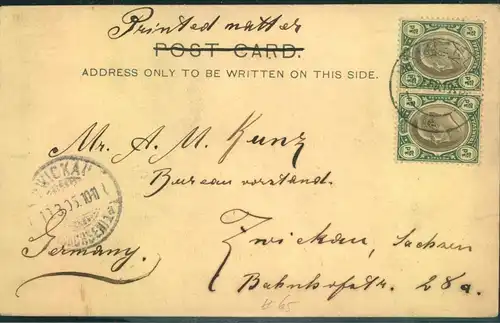 Printed matter
POST CARD.
ADDRESS ONLY TO BE WRITTEN ON THIS SIDE.
Mr. A. M. Kunz
Bureauvorstand.
Zwickau, Sachsen
Bahnhofstr. 28a.
Germany.
ZWICKAU
(SACHSEN)